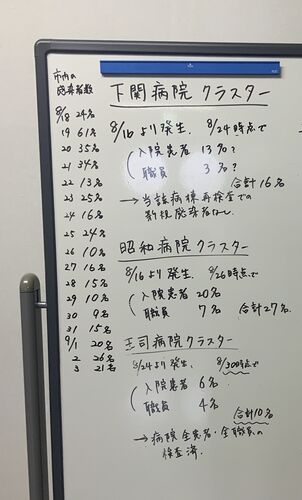 市内の
感染者数
8/18 24名
19 61名
20 35名
21 34名
22 13名
23 25名
24 16名
25 24名
26 10名
27 16名
28 15名
29 10名
30 9名
31 15名
9/1 20名
2 26名
3 21名
下関病院クラスター
8/16より発生. 8/24時点で
入院患者 13名?
職員 3名?
合計16名
→当該病棟再検査での
新規感染者なし.
昭和病院クラスター
8/16より発生 8/26時点で
入院患者 20名
職員 7名 合計27名.
王司病院クラスター
8/24より発生、 8/30時点で
入院患者 6名
職員 4名
合計10名
→病院全患者・全職員の
検査済.